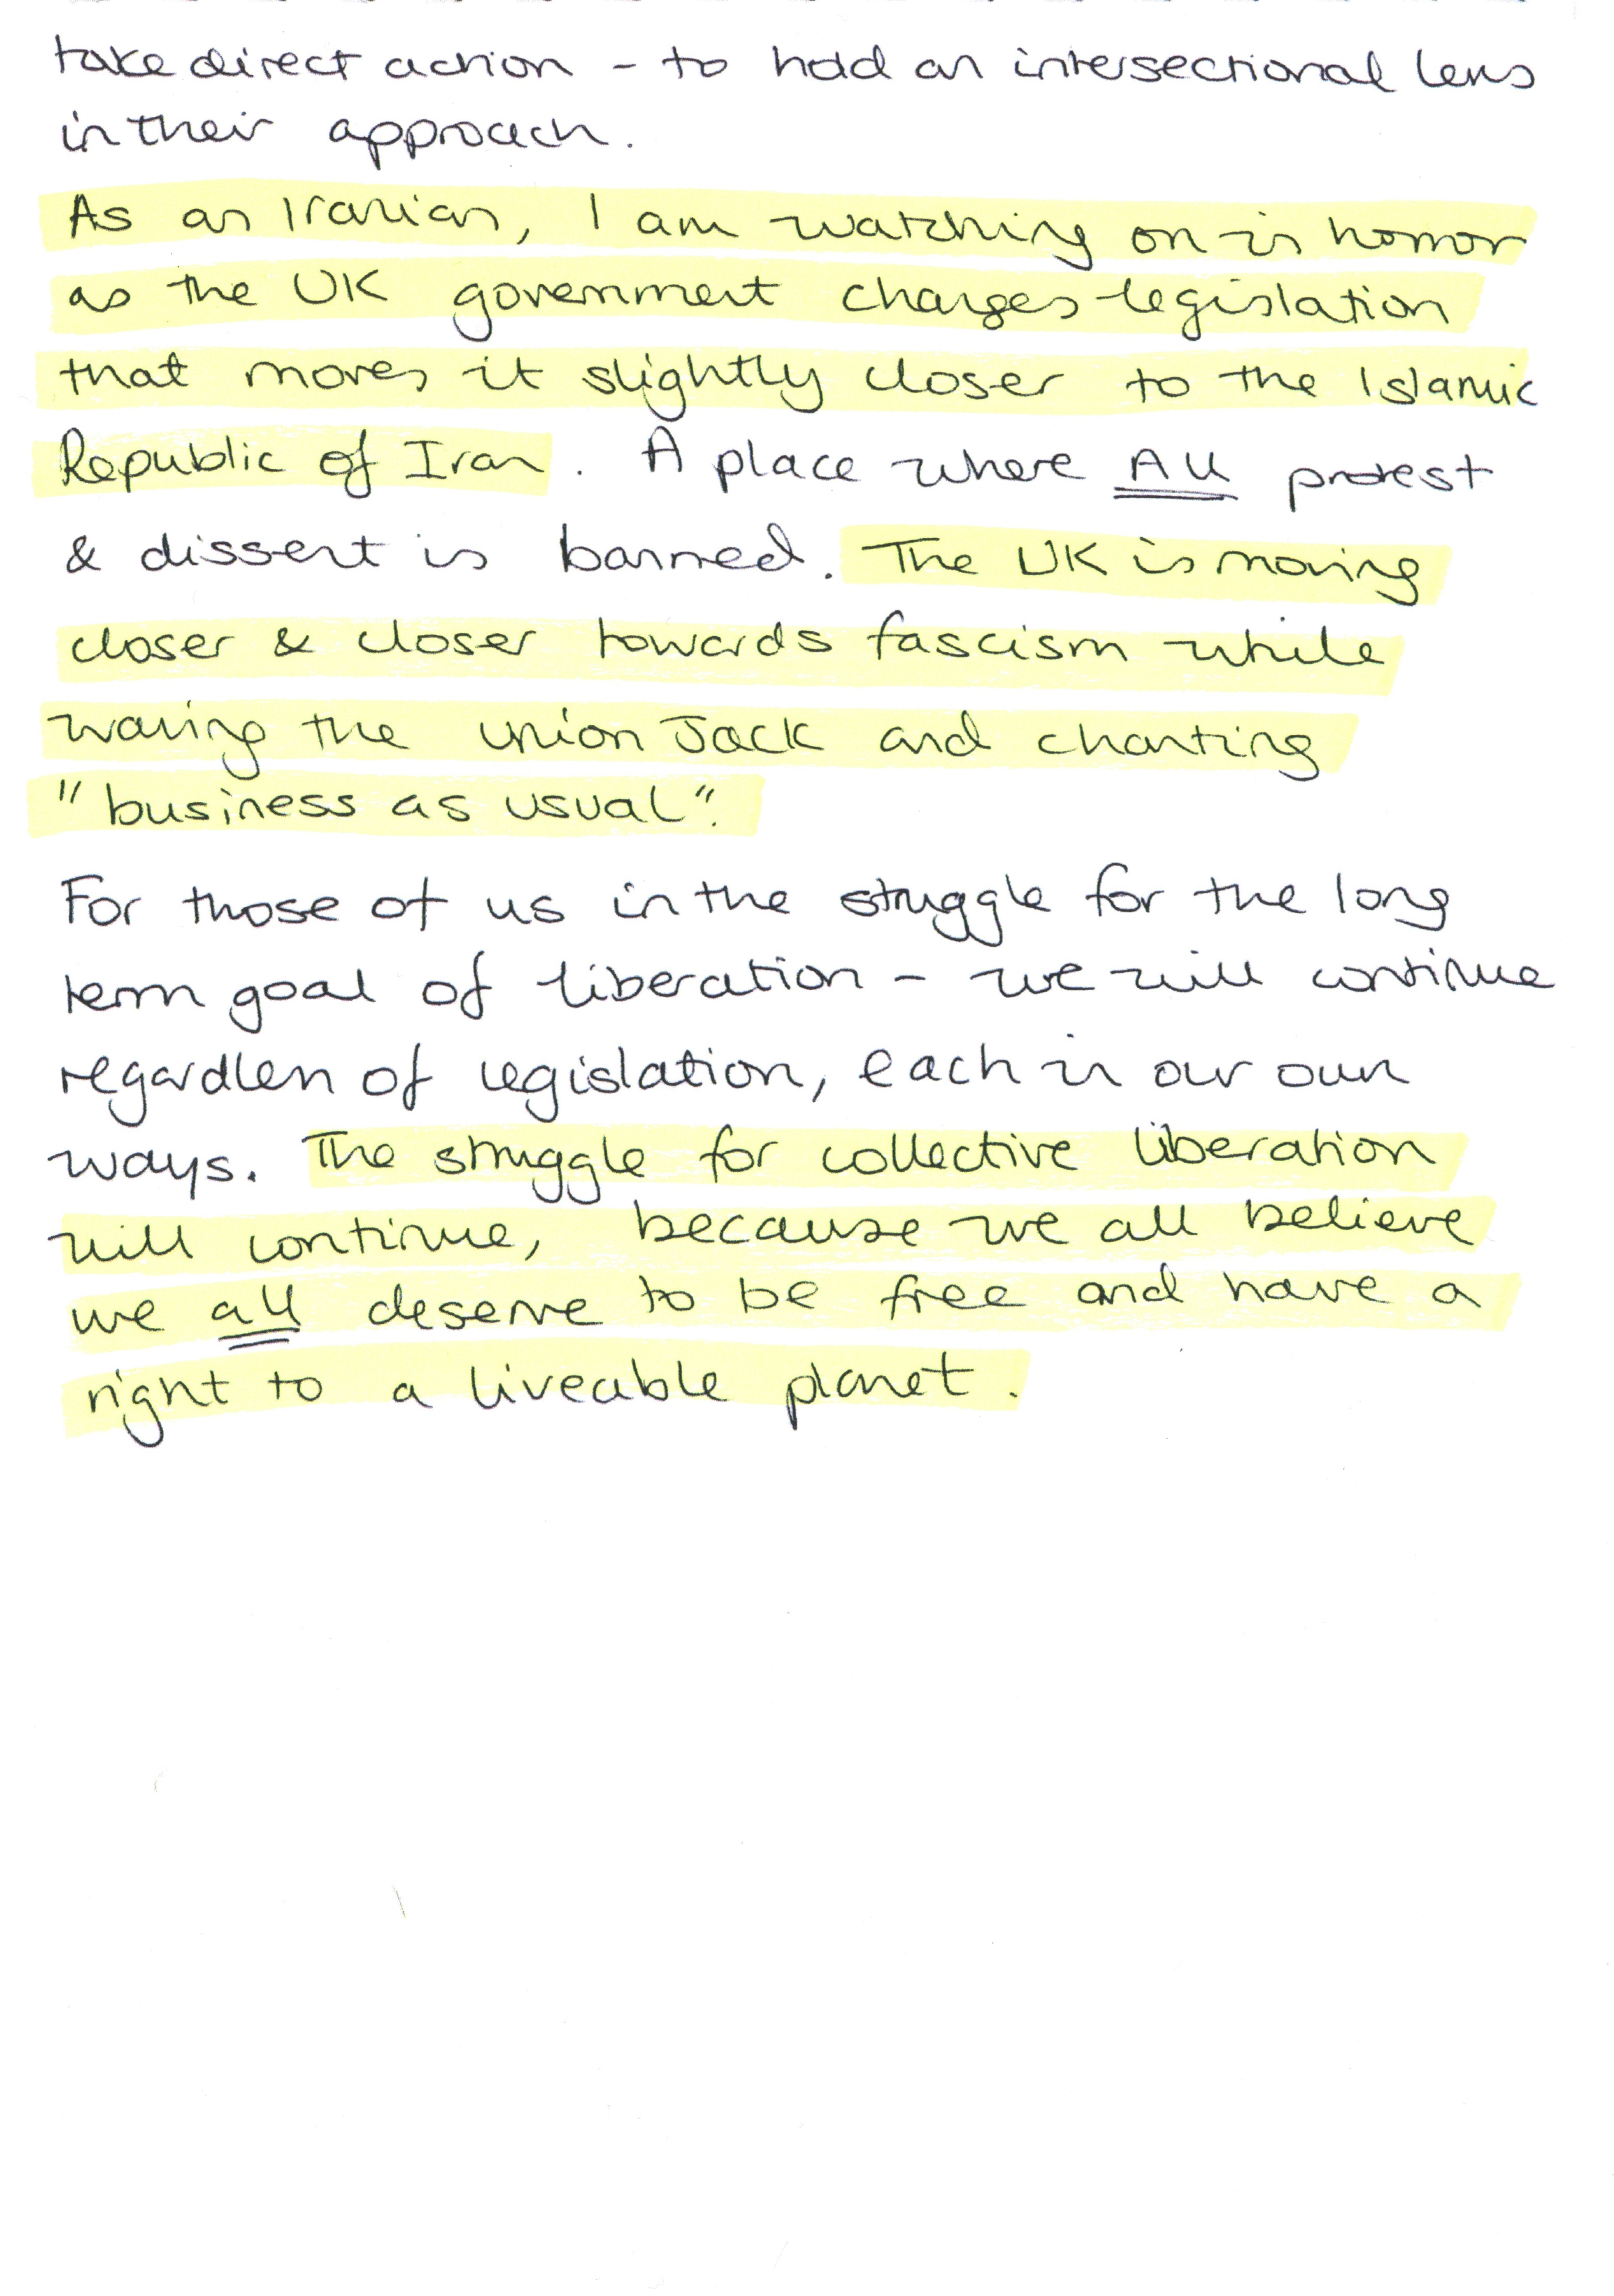 take direct action - to hold an intersectional lens
in their approach.
As an Iranian, I am watching on in horror
as the UK government changes legislation
that moves it slightly closer to the Islamic
Republic of Iran. A place where All protest
& dissent is banned. The UK is moving
closer & closer towards fascism while
waving the union Jack and chanting
"business as usual".
For those of us in the struggle for the long
term goal of liberation - we will continue
regardless of legislation, each in our own
ways. The struggle for collective liberation
will continue, because we all believe
we all deserve to be free and have a
right to a liveable planet.